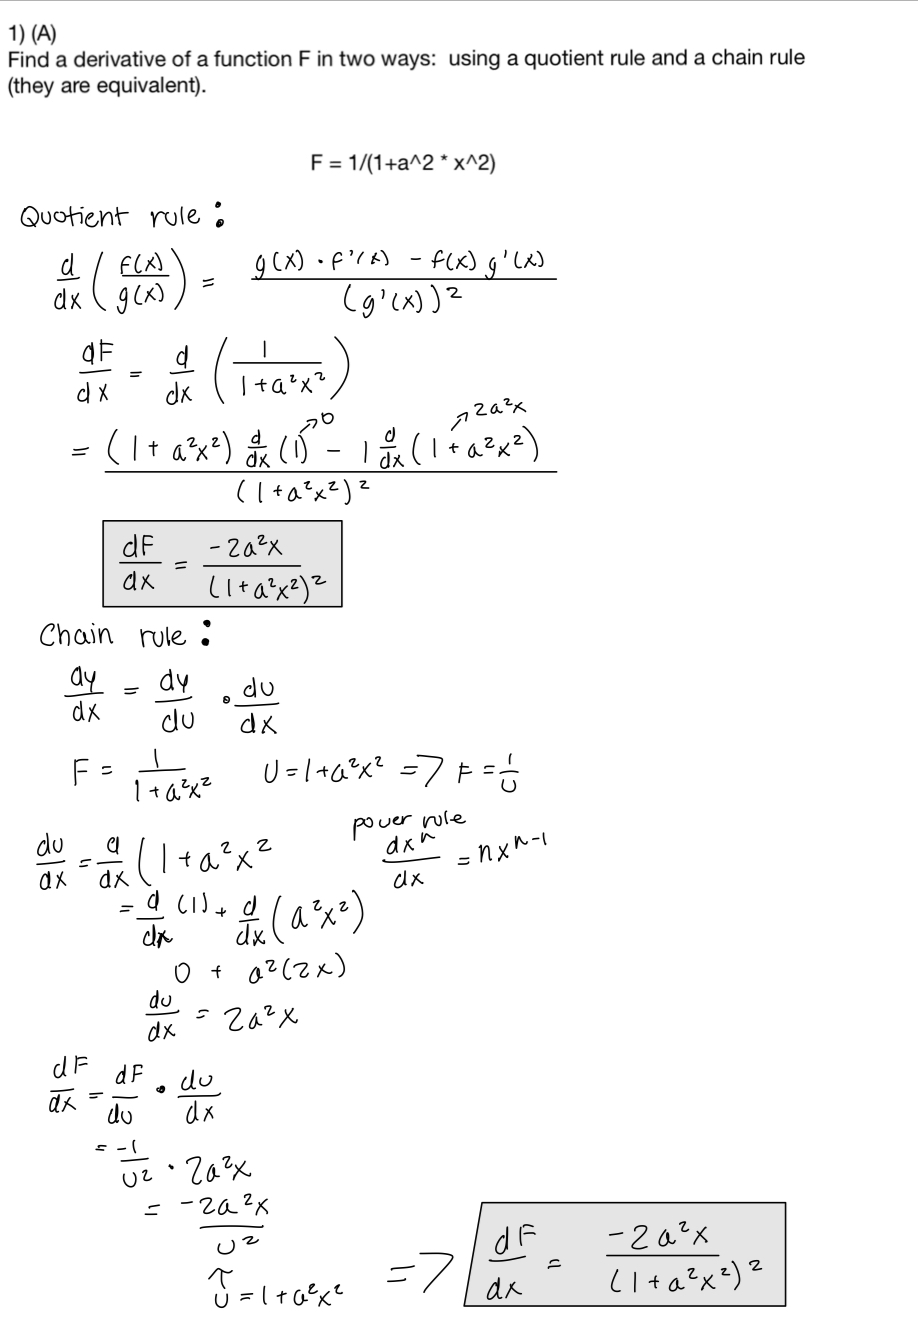 1) (A)
Find a derivative of a function F in two ways:  using a quotient rule and a chain rule
(they are equivalent).
F = 1/(1+a^2 * x^2)
Quotient rule :
d/dx ( f(x)/g(x) ) = (g(x) · f'(x) - f(x) g'(x)) / (g'(x))²
dF/dx = d/dx ( 1/(1+a²x²) )
= ((1+a²x²) d/dx (1) → 0 - 1 d/dx (1+a²x²) → 2a²x) / (1+a²x²)²
dF/dx = -2a²x / (1+a²x²)²
Chain rule :
dy/dx = dy/du · du/dx
F = 1/(1+a²x²)   U = 1+a²x² => F = 1/U
power rule
du/dx = d/dx (1+a²x²   dxⁿ/dx = nxⁿ⁻¹
= d/dx (1) + d/dx (a²x²)
0 + a²(2x)
du/dx = 2a²x
dF/dx = dF/du · du/dx
= -1/U² · 2a²x
= -2a²x / U²
↑
U = 1+a²x² => dF/dx = -2a²x / (1+a²x²)²